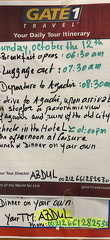 GATE 1
TRAVEL
Your Daily Tour Itinerary
Sunday, October the 12th
Breakfast opens : 06:30am
Luggage out : 07:30am
Departure to Agadir : 08:30am
drive to Agadir, upon arrival
stop for a panoramic view
Agadir and ruins of the old city
check in the Hotel 2:00pm
an afternoon at leisure
Lunch & Dinner on your own
Your Tour Director ABDUL
of the World for Less
Dinner on your own.
Your TM: ABDUL
00212661282530